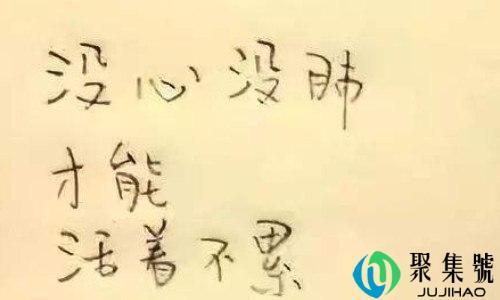 没心没肺
才能
活着不累
聚集號
JUJIHAO